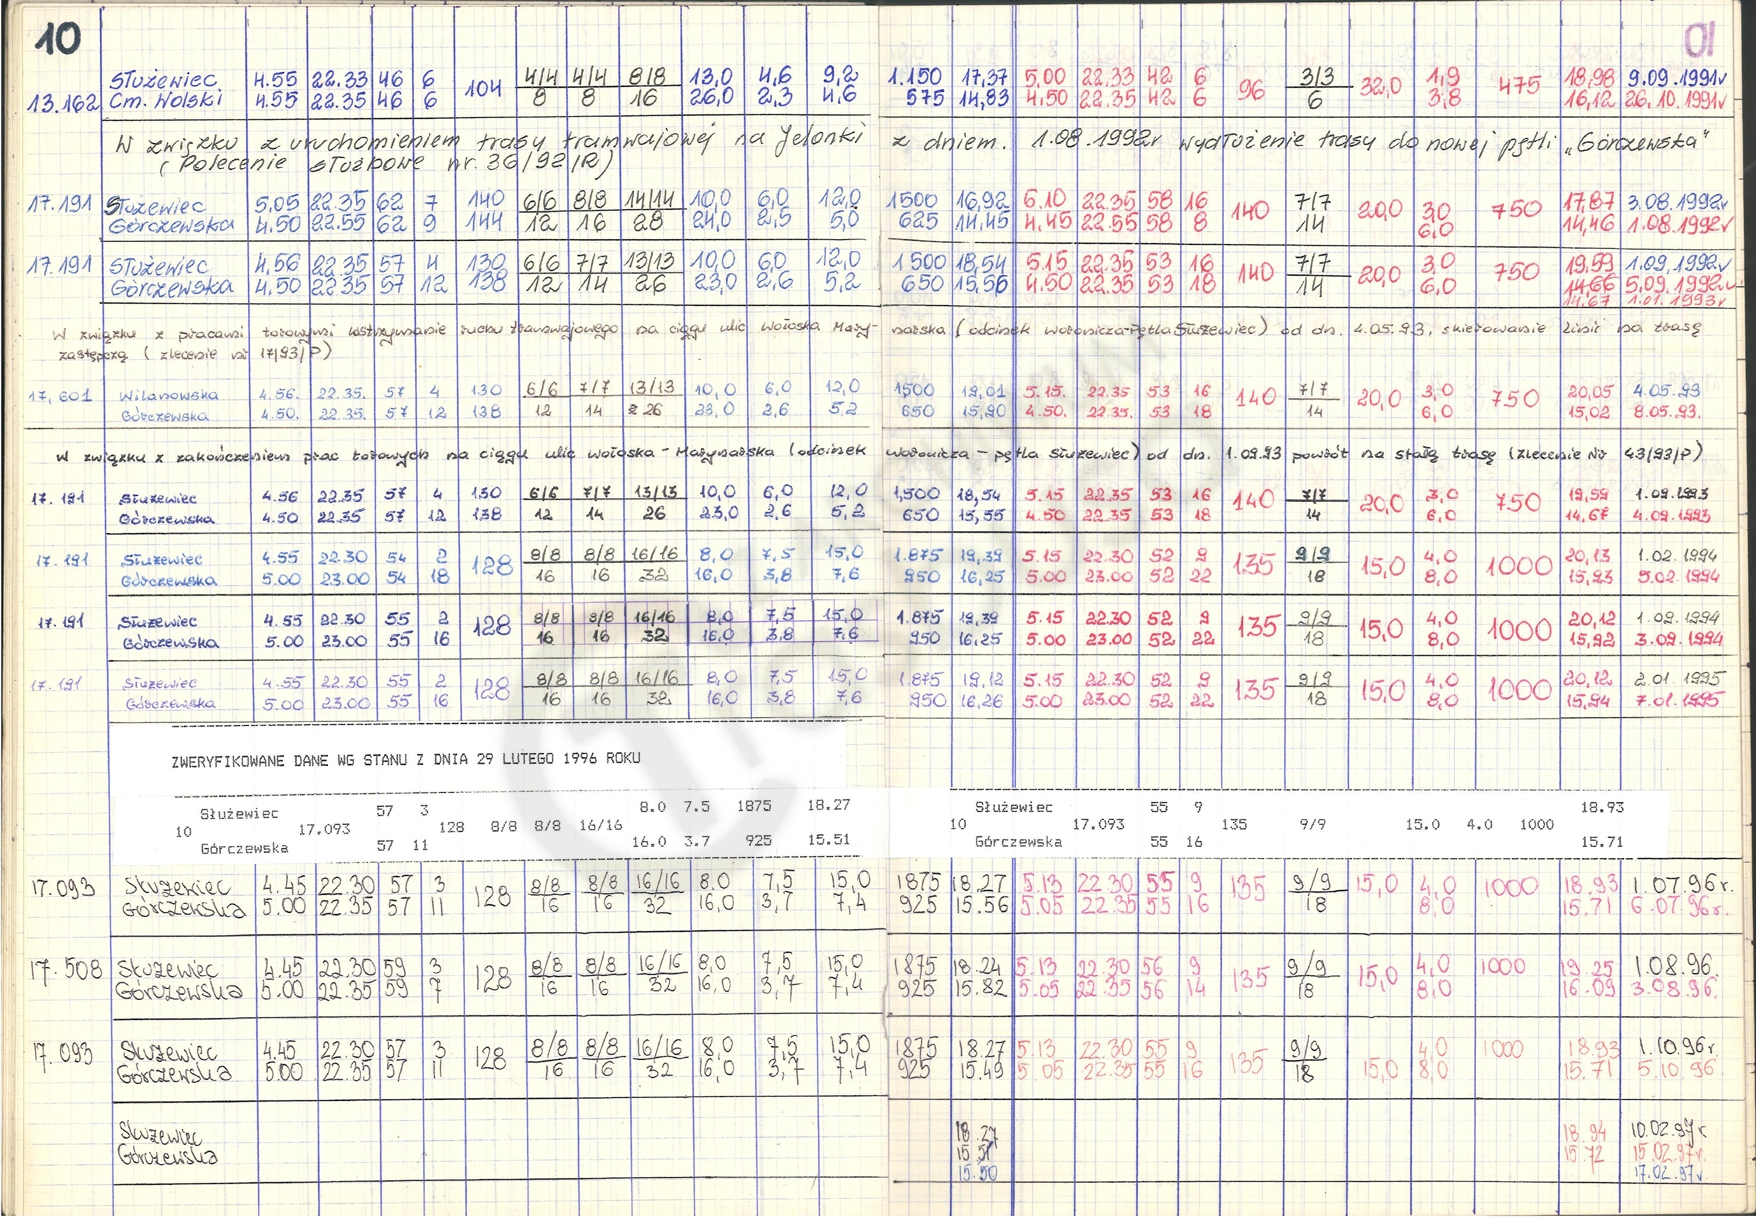 10 10
Służewiec 4.55 22.33 46 6 104 4/4 4/4 8/8 13,0 4,6 9,2 1.150 17,37 5,00 22.33 42 6 96 3/3 32,0 1,9 475 18,98 9.09.1991r
13.162 Cm. Wolski 4.55 22.35 46 6 8 8 16 26,0 2,3 4,6 575 14,83 4.50 22.35 42 6 6 3,8 16,12 26.10.1991r
W związku z uruchomieniem trasy tramwajowej na Jelonki z dniem. 1.08.1992r wydłużenie trasy do nowej pętli „Górczewska"
(Polecenie służbowe nr. 36/92/R)
17.191 Służewiec 5,05 22.35 62 7 140 6/6 8/8 14/14 10,0 6,0 12,0 1500 16,92 6.10 22.35 58 16 140 7/7 20,0 3,0 750 17,87 3.08.1992r
Górczewska 4.50 22.55 62 9 144 12 16 28 24,0 2,5 5,0 625 14,45 4.45 22.55 58 8 14 6,0 14,46 1.08.1992r
17.191 Służewiec 4,56 22.35 57 4 130 6/6 7/7 13/13 10,0 6,0 12,0 1500 18,54 5.15 22.35 53 16 140 7/7 20,0 3,0 750 19,59 1.09.1992r
Górczewska 4.50 22.35 57 12 138 12 14 26 23,0 2,6 5,2 650 15,56 4.50 22.35 53 18 14 6,0 14,66 5,09.1992r
14,67 1.01.1993r
W związku z pracami torowymi wstrzymanie ruchu tramwajowego na ciągu ulic Wołoska Mary- narska (odcinek Wołoniczza-Pętla Służewiec) od dn. 4.05.93, skierowanie linii na trasę
zastępczą (zlecenie nr 17/93/P)
17,601 Wilanowska 4.56. 22.35. 57 4 130 6/6 7/7 13/13 10,0 6,0 12,0 1500 19,01 5.15. 22.35 53 16 140 7/7 20,0 3,0 750 20,05 4.05.93
Górczewska 4.50. 22.35. 57 12 138 12 14 26 23,0 2,6 5,2 650 15,90 4.50. 22.35. 53 18 14 6,0 15,02 8.05.93.
W związku z zakończeniem prac torowych na ciągu ulic Wołoska - Marynarska (odcinek Wołonicza - pętla Służewiec) od dn. 1.09.93 powrót na stałą trasę (zlecenie Nr 43/93/P)
17.191 Służewiec 4.56 22.35 57 4 130 6/6 7/7 13/13 10,0 6,0 12,0 1,500 18,54 5.15 22.35 53 16 140 7/7 20,0 3,0 750 19,59 1.09.1993
Górczewska 4.50 22.35 57 12 138 12 14 26 23,0 2,6 5,2 650 15,55 4.50 22.35 53 18 14 6,0 14,67 4.09.1993
17.191 Służewiec 4.55 22.30 54 2 128 8/8 8/8 16/16 8,0 7,5 15,0 1.875 19,39 5.15 22.30 52 9 135 9/9 15,0 4,0 1000 20,13 1.02.1994
Górczewska 5.00 23.00 54 18 16 16 32 16,0 3,8 7,6 950 16,25 5.00 23.00 52 22 18 8,0 15,93 5.02.1994
17.191 Służewiec 4.55 22.30 55 2 128 8/8 8/8 16/16 8,0 7,5 15,0 1.875 19,39 5.15 22.30 52 9 135 9/9 15,0 4,0 1000 20,12 1.09.1994
Górczewska 5.00 23.00 55 16 16 16 32 16,0 3,8 7,6 950 16.25 5.00 23.00 52 22 18 8,0 15,92 3.09.1994
17.191 Służewiec 4.55 22.30 55 2 128 8/8 8/8 16/16 8,0 7,5 15,0 1.875 19,12 5.15 22.30 52 9 135 9/9 15,0 4,0 1000 20,12 2.01.1995
Górczewska 5.00 23.00 55 16 16 16 32 16,0 3,8 7,6 950 16,26 5.00 23.00 52 22 18 8,0 15,94 7.01.1995
ZWERYFIKOWANE DANE WG STANU Z DNIA 29 LUTEGO 1996 ROKU
Służewiec 57 3 8.0 7.5 1875 18.27 Służewiec 55 9 18.93
10 17.093 128 8/8 8/8 16/16 10 17.093 135 9/9 15.0 4.0 1000
Górczewska 57 11 16.0 3.7 925 15.51 Górczewska 55 16 15.71
17.093 Służewiec 4.45 22.30 57 3 128 8/8 8/8 16/16 8.0 7,5 15,0 1875 18.27 5.13 22.30 55 9 135 9/9 15,0 4,0 1000 18.93 1.07.96r.
Górczewska 5.00 22.35 57 11 16 16 32 16,0 3,7 7,4 925 15.56 5.05 22.35 55 16 18 8,0 15.71 6.07.96r.
17.508 Służewiec 4.45 22.30 59 3 128 8/8 8/8 16/16 8,0 7,5 15,0 1875 18.24 5.13 22.30 56 9 135 9/9 15,0 4,0 1000 19.25 1.08.96.
Górczewska 5.00 22.35 59 7 16 16 32 16,0 3,7 7,4 925 15.82 5.05 22.35 56 14 18 8,0 16.09 3.08.96.
17.093 Służewiec 4.45 22.30 57 3 128 8/8 8/8 16/16 8,0 7,5 15,0 1875 18.27 5.13 22.30 55 9 135 9/9 15,0 4,0 1000 18.93 1.10.96r.
Górczewska 5.00 22.35 57 11 16 16 32 16,0 3,7 7,4 925 15.49 5.05 22.35 55 16 18 8,0 15.71 5.10.96.
Służewiec 18.27 18.94 10.02.97r
Górczewska 15.51 15.72 15.02.97r.
15.50 17.02.97r.